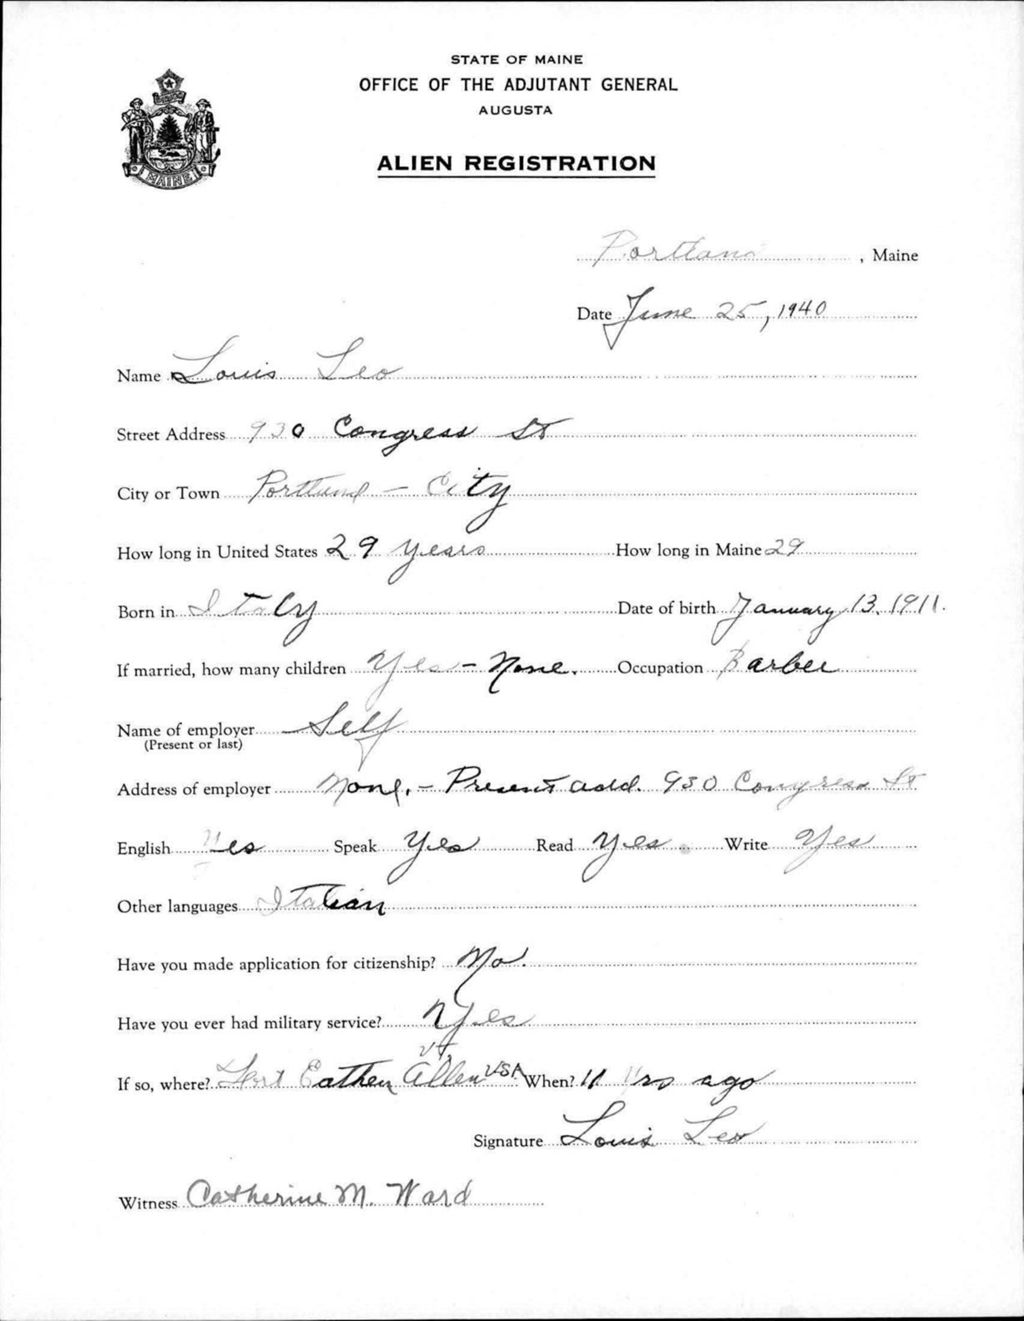 STATE OF MAINE
OFFICE OF THE ADJUTANT GENERAL
AUGUSTA
ALIEN REGISTRATION
MAINE
Portland, Maine
Date June 25, 1940
Name Louis Leo
Street Address 930 Congress St
City or Town Portland - City
How long in United States 29 years How long in Maine 29
Born in Italy Date of birth January 13, 1911.
If married, how many children Yes - None. Occupation Barber
Name of employer Self
(Present or last)
Address of employer None. - Present add. 930 Congress St
English Yes Speak Yes Read Yes Write Yes
Other languages Italian
Have you made application for citizenship? No.
Have you ever had military service? Yes
Vt.
If so, where? Fort Eathen Allen USA When? 11 Yrs ago
Signature Louis Leo
Witness Catherine M. Ward